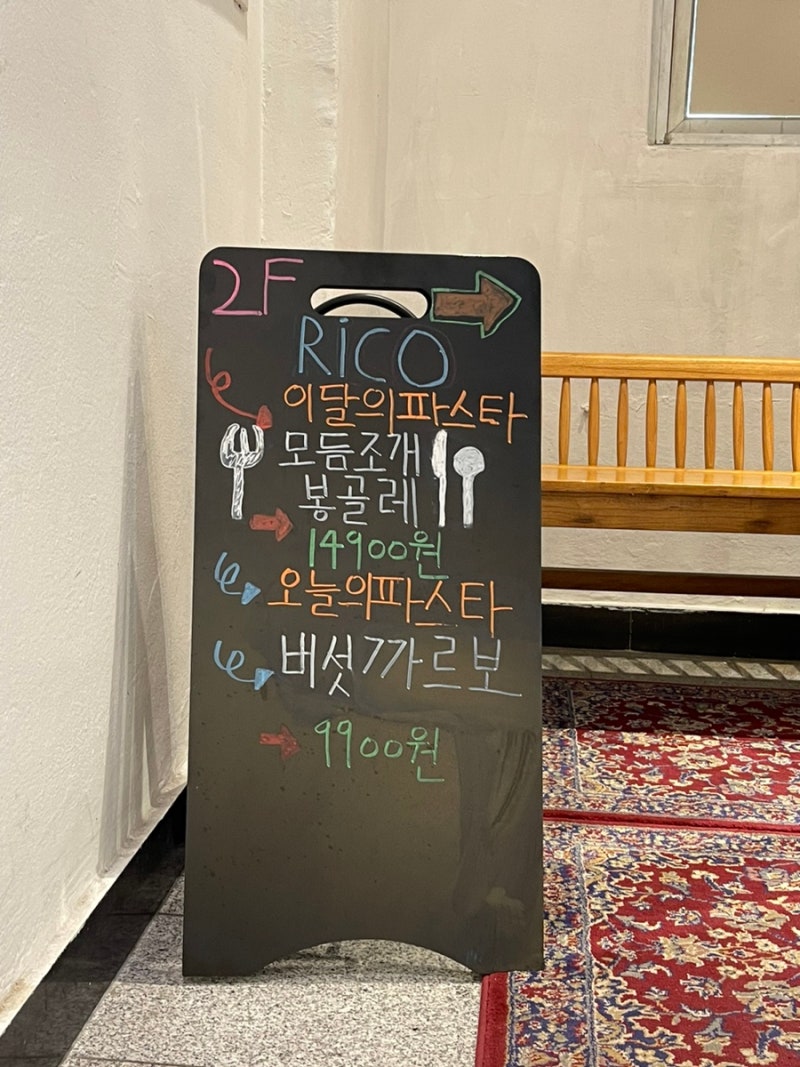 2F
RiCO
이달의파스타
모듬조개
봉골레
14900원
오늘의파스타
버섯까르보
9900원